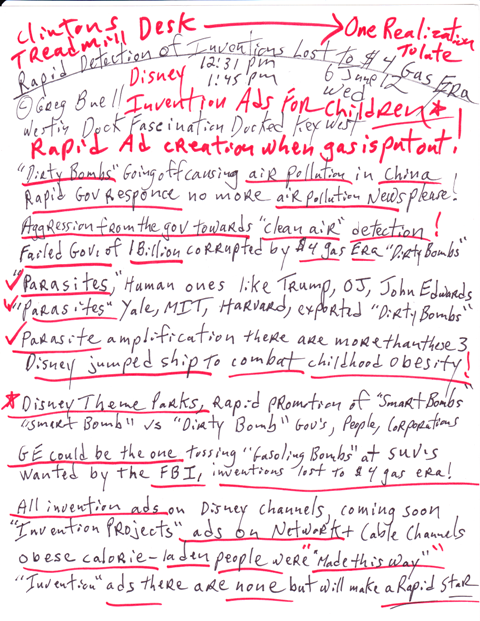 Clintons Desk → One Realization
Treadmill Tolate
Rapid Detection of Inventions Lost to $4 Gas Era
12:31 pm 6 June 12
Disney 1:45 pm Wed
© Greg Buell Invention Ads For Children*
Westin Dock Fascination Docked Key West
Rapid Ad creation when gas is put out!
"Dirty Bombs" Going off causing air pollution in China
Rapid Gov Responce no more air pollution News please!
Aggression from the gov towards "clean air" detection!
Failed Gov. of 1 Billion corrupted by $4 gas Era "Dirty Bombs"
✓ "Parasites," Human ones like Trump, OJ, John Edwards
✓ "Parasites" Yale, MIT, Harvard, exported "Dirty Bombs"
✓ Parasite amplification there are more than these 3
Disney jumped ship to combat childhood obesity!
* Disney Theme Parks, Rapid promotion of "Smart Bombs"
"Smart Bomb" vs "Dirty Bomb" Gov's, People, Corporations
GE could be the one tossing "Gasoling Bombs" at SUV's
wanted by the FBI, inventions lost to $4 gas era!
All invention ads on Disney channels, coming soon
"Invention Projects" ads on Network + Cable Channels
obese calorie-laden people were "Made this way"
"Invention" ads there are none but will make a Rapid Star